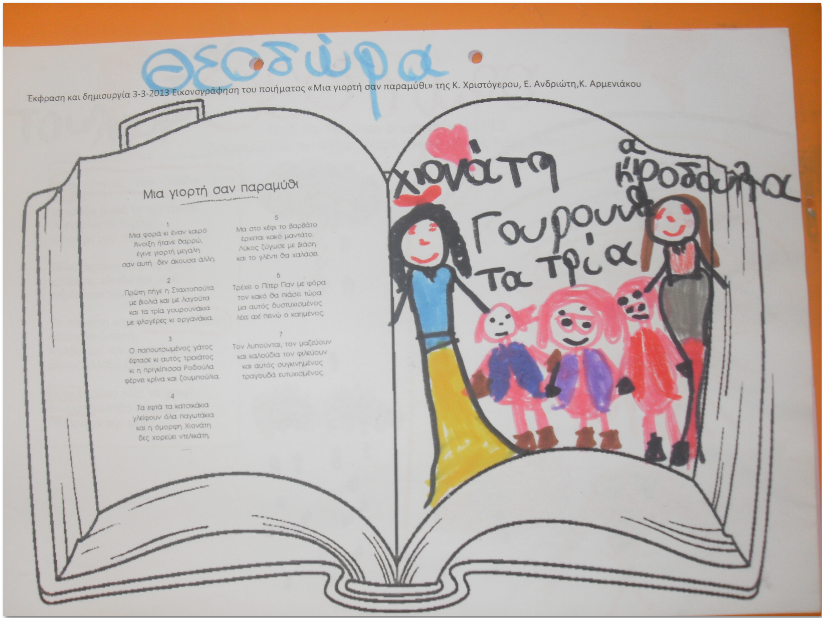 Θεοδώρα
Έκφραση και δημιουργία 3-3-2013 Εικονογράφηση του ποιήματος «Μια γιορτή σαν παραμύθι» της Κ. Χριστόγερου, Ε. Ανδριώτη,Κ. Αρμενιάκου
Μια γιορτή σαν παραμύθι
1
Μια φορά κι έναν καιρό
Άνοιξη ήτανε θαρρώ,
έγινε γιορτή μεγάλη
σαν αυτή δεν άκουσα άλλη.
2
Πρώτη πήγε η Σταχτοπούτα
με βιολιά και με λαγούτα
και τα τρία γουρουνάκια
με φλογέρες κι οργανάκια.
3
Ο παπουτσωμένος γάτος
έφτασε κι αυτός τρεχάτος
κι η πριγκίπισσα Ροδούλα
φέρνει κρίνα και ζουμπούλια.
4
Τα εφτά τα κατσικάκια
γλείφουν όλα παγωτάκια
και η όμορφη Χιονάτη,
δες χορεύει ντελικάτη.
5
Μα στο κέφι το βαρβάτο
έρχεται κακό μαντάτο.
Λύκος ζύγωσε με βιάση
και το γλέντι θα χαλάσει.
6
Τρέχει ο Πίτερ Παν με φόρα
τον κακό θα πιάσει τώρα
μα αυτός δυστυχισμένος
λέει αχ! πεινώ ο καημένος.
7
Τον λυπούνται, τον μαζεύουν
και καλούδια τον φιλεύουν
και αυτός συγκινημένος
τραγουδά ευτυχισμένος.
χιονάτη
Γουρουνα
τα τρία